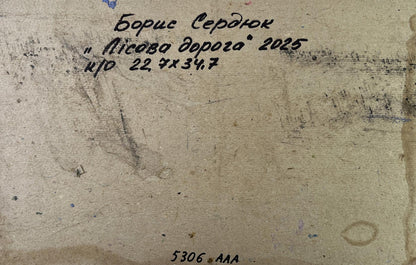 Борис Сердюк
„Лісова дорога" 2025
к/о 22,7х34.7
5306 ААА